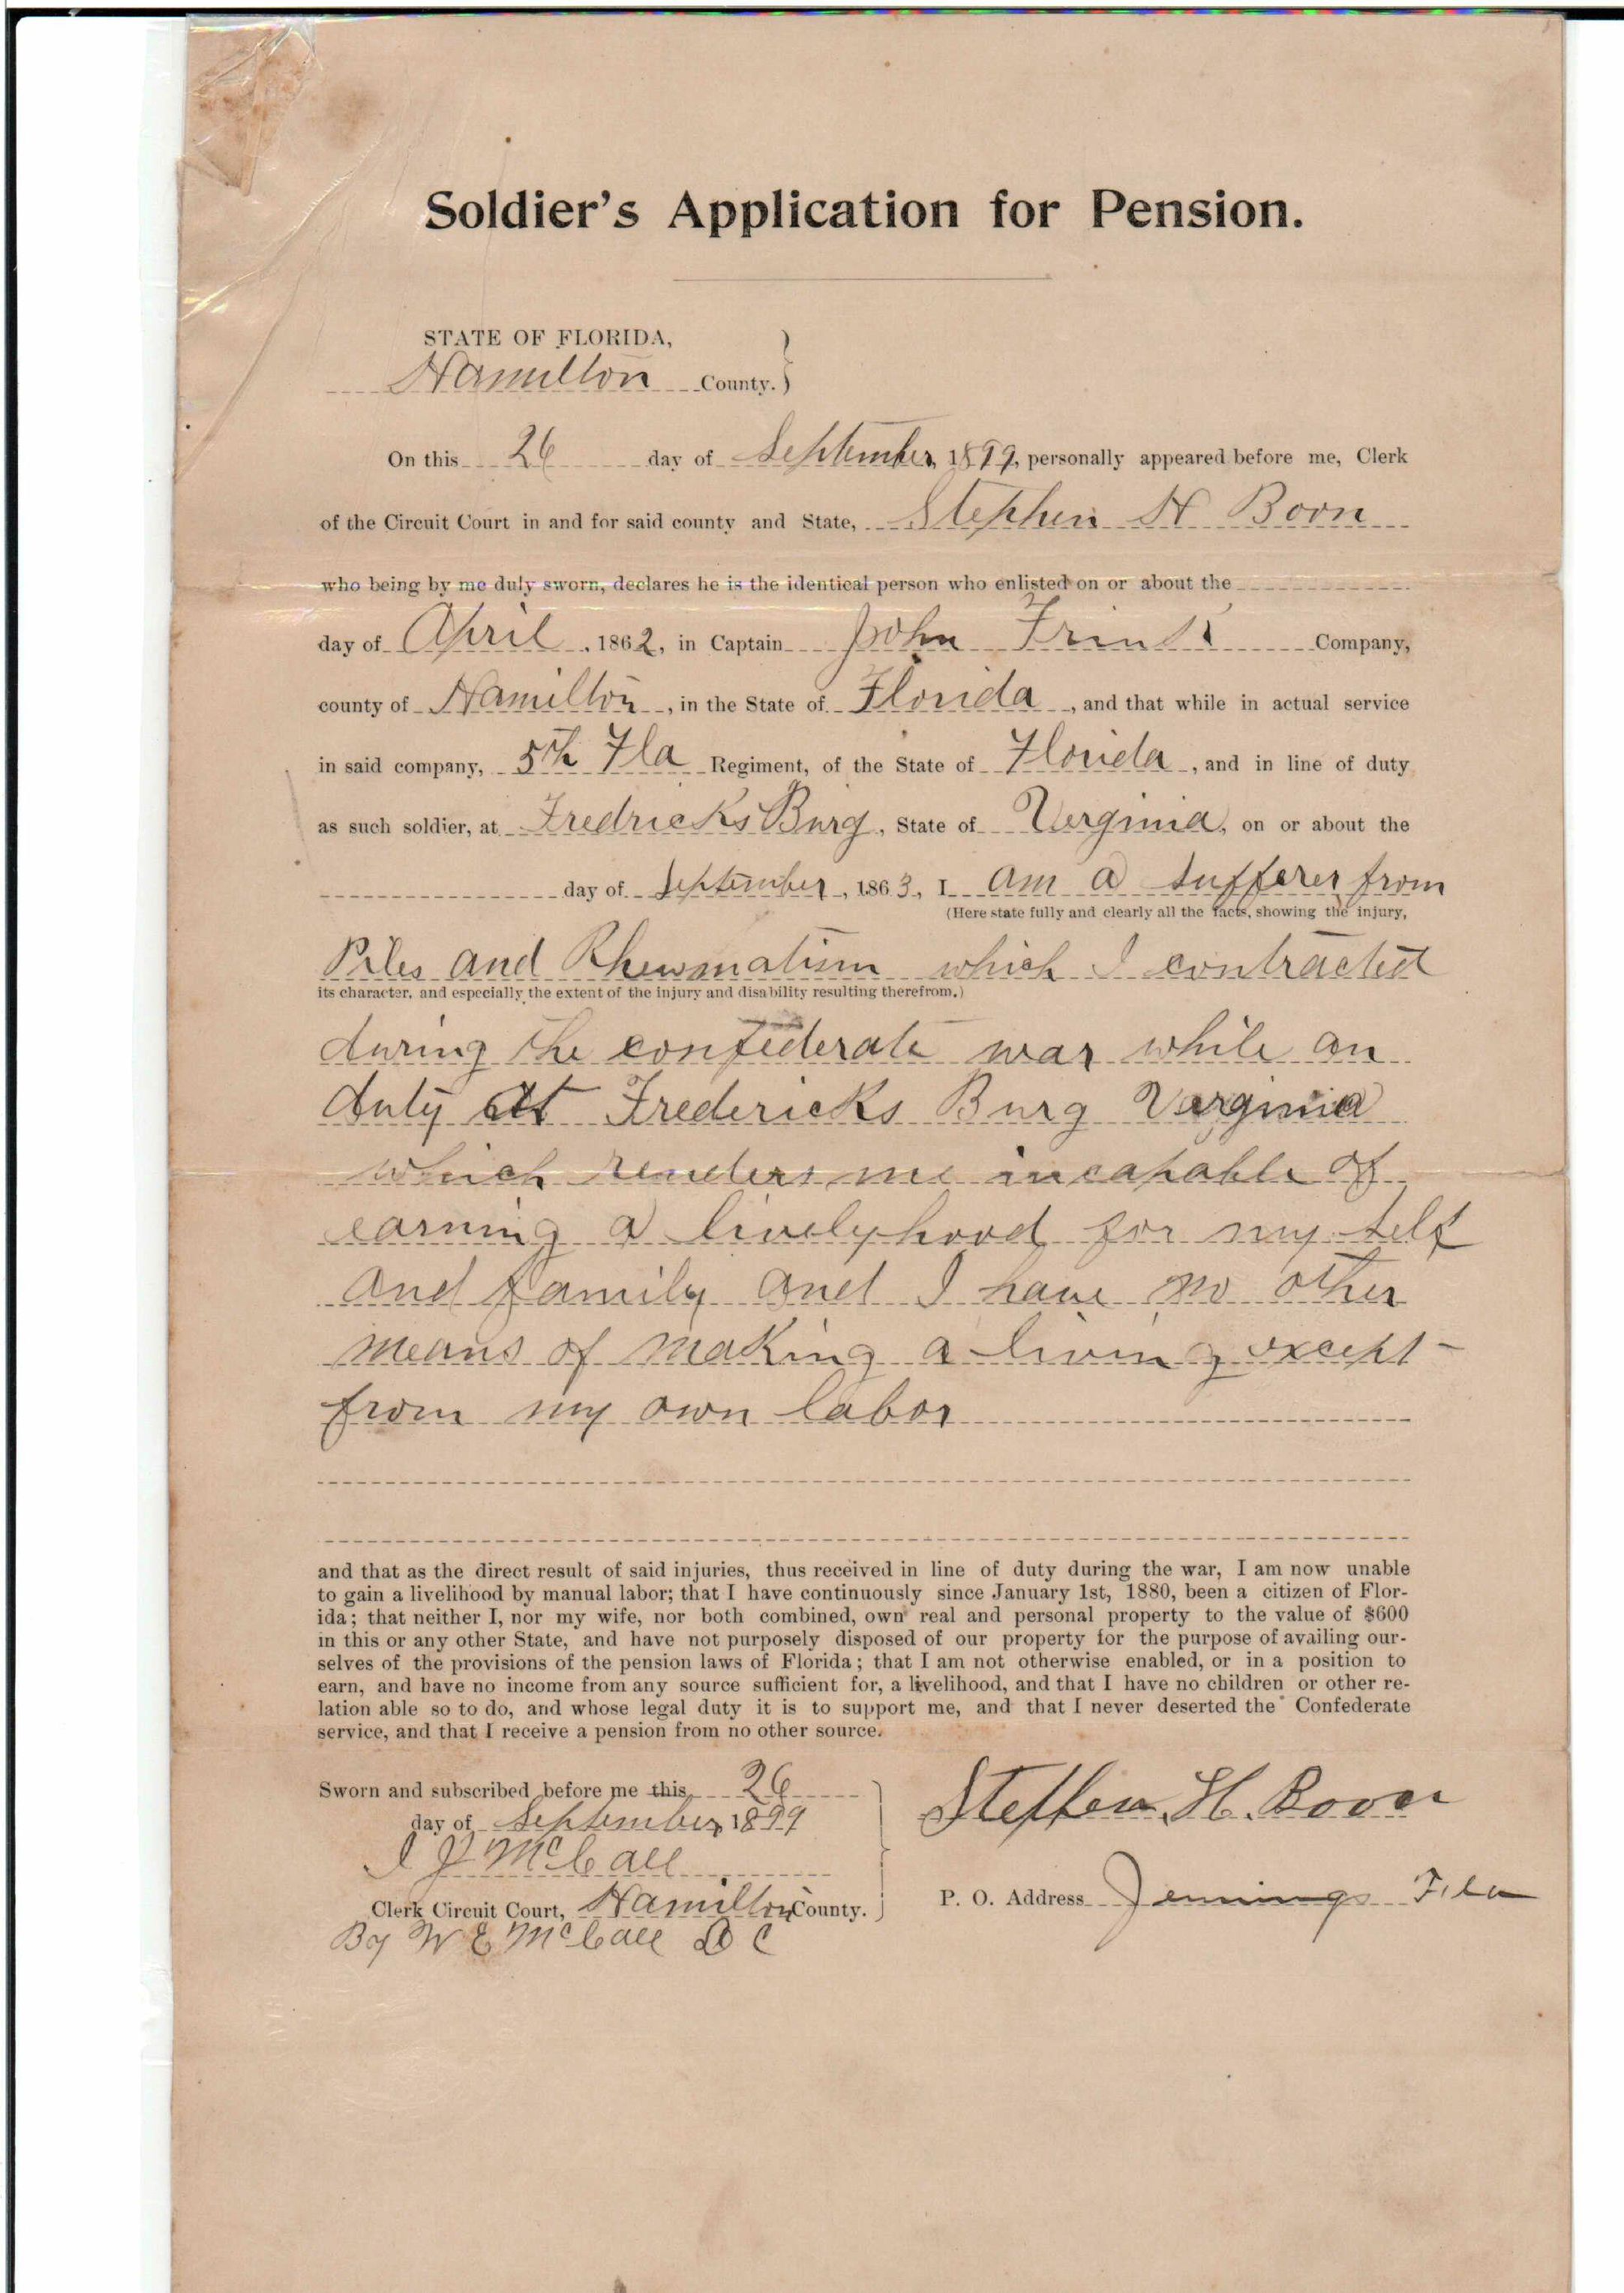 Soldier's Application for Pension.
STATE OF FLORIDA,
Hamilton County.
On this 26 day of September, 1899, personally appeared before me, Clerk
of the Circuit Court in and for said county and State, Stephen H Boon
who being by me duly sworn, declares he is the identical person who enlisted on or about the
day of April, 1862, in Captain John Frink Company,
county of Hamilton, in the State of Florida, and that while in actual service
in said company, 5th Fla Regiment, of the State of Florida, and in line of duty
as such soldier, at FredricksBurg, State of Verginia, on or about the
day of September, 1863, I am a sufferer from
(Here state fully and clearly all the facts, showing the injury,
Piles and Rhewmatism which I contracted
its character, and especially the extent of the injury and disability resulting therefrom.)
during the confederate war while on
duty at Fredericks Burg Varginia
which renders me incapable of
earning a livelyhood for my self
and family and I have no other
means of making a living except
from my own labor
and that as the direct result of said injuries, thus received in line of duty during the war, I am now unable
to gain a livelihood by manual labor; that I have continuously since January 1st, 1880, been a citizen of Flor-
ida; that neither I, nor my wife, nor both combined, own real and personal property to the value of $600
in this or any other State, and have not purposely disposed of our property for the purpose of availing our-
selves of the provisions of the pension laws of Florida; that I am not otherwise enabled, or in a position to
earn, and have no income from any source sufficient for, a livelihood, and that I have no children or other re-
lation able so to do, and whose legal duty it is to support me, and that I never deserted the Confederate
service, and that I receive a pension from no other source.
Sworn and subscribed before me this 26
day of September, 1899
J McCall
Clerk Circuit Court, Hamilton County.
By W E McCall D C
Steffen H. Boon
P. O. Address Jennings Fla